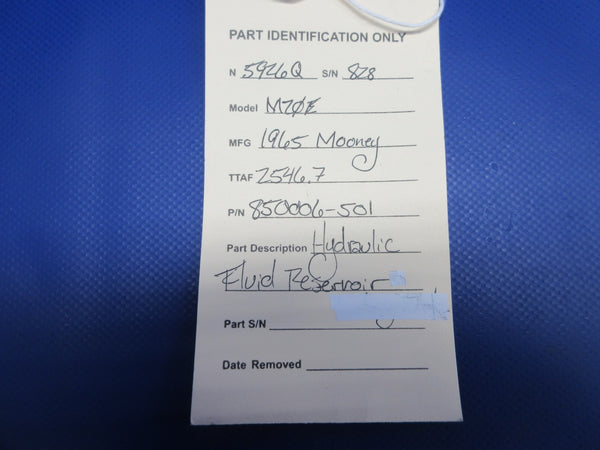 PART IDENTIFICATION ONLY
N 5926Q S/N 828
Model M20E
MFG 1965 Mooney
TTAF 2546.7
P/N 850006-501
Part Description Hydraulic
Fluid Reservoir
Part S/N
Date Removed